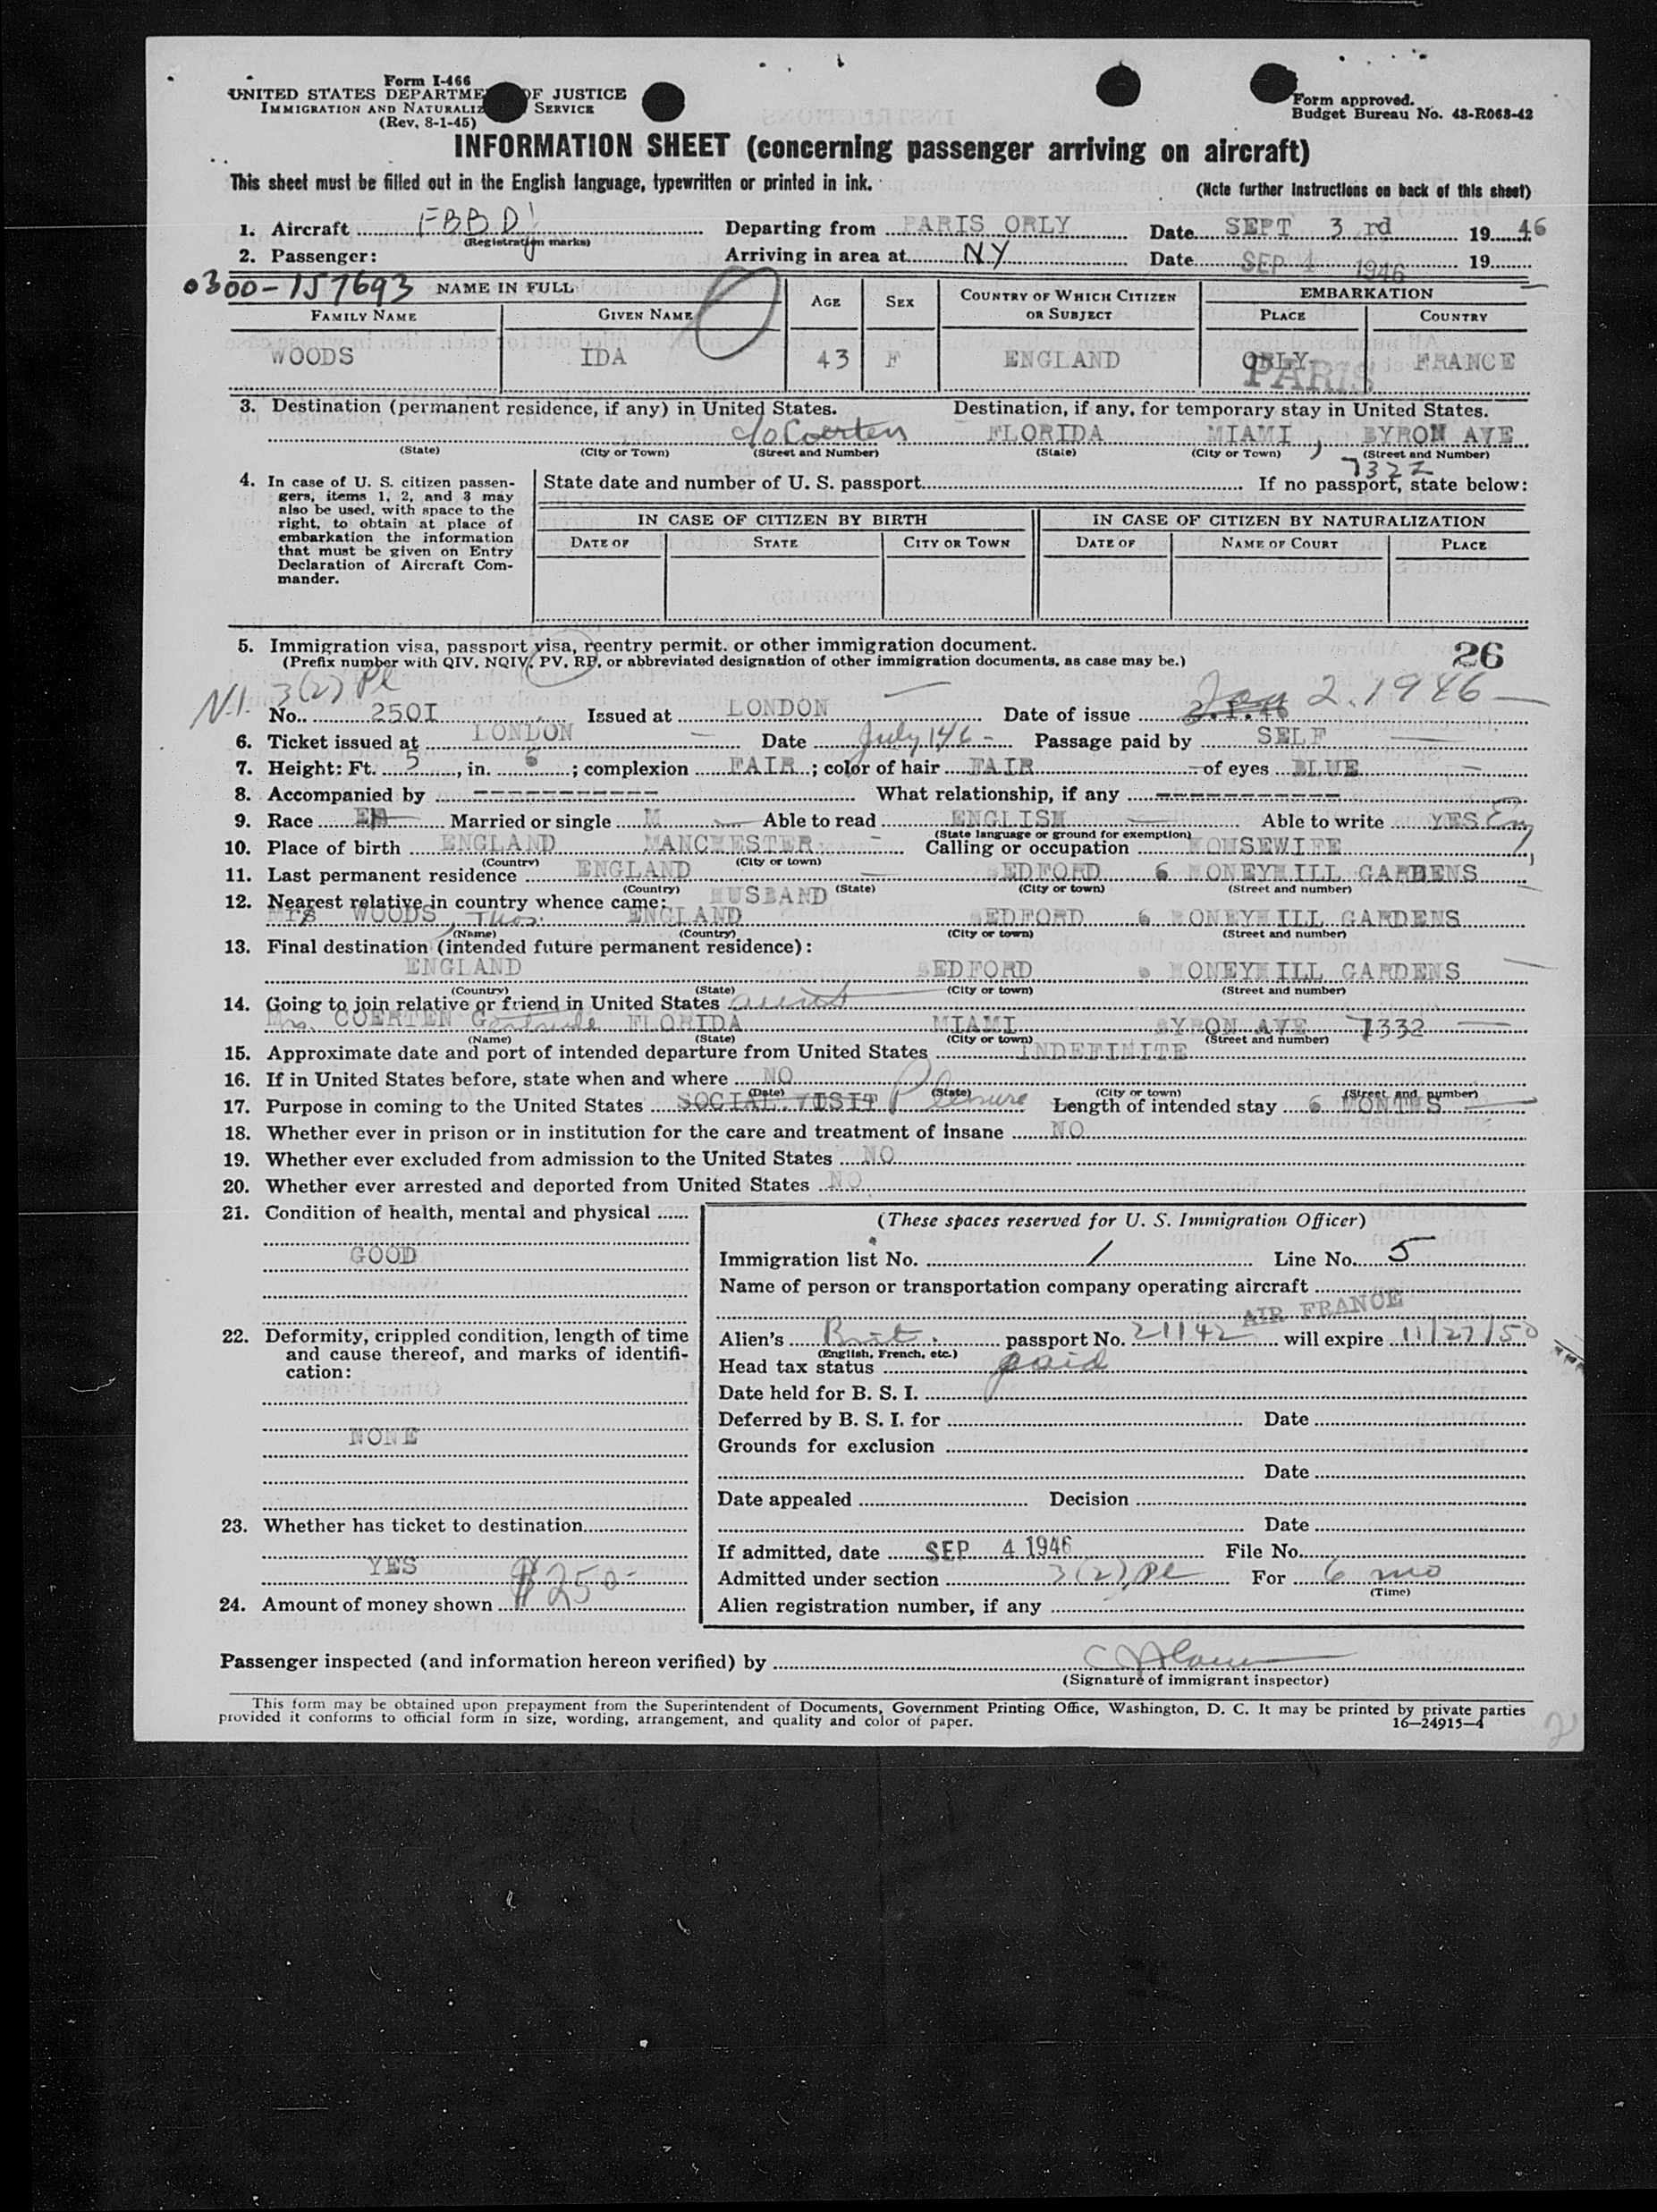 Form I-466
UNITED STATES DEPARTME OF JUSTICE
IMMIGRATION AND NATURALIZ SERVICE
(Rev. 8-1-45)
Form approved.
Budget Bureau No. 43-R068-42
INFORMATION SHEET (concerning passenger arriving on aircraft)
This sheet must be filled out in the English language, typewritten or printed in ink.
(Note further instructions on back of this sheet)
1. Aircraft FBBD Departing from PARIS ORLY Date SEPT 3 rd 19 46
(Registration marks)
2. Passenger: Arriving in area at NY Date SEP 4 1946 19
0300-157693 NAME IN FULL AGE SEX COUNTRY OF WHICH CITIZEN OR SUBJECT EMBARKATION
FAMILY NAME GIVEN NAME PLACE COUNTRY
WOODS IDA 43 F ENGLAND ORLY FRANCE
PARIS
3. Destination (permanent residence, if any) in United States. Destination, if any, for temporary stay in United States.
c/o Coerten FLORIDA MIAMI, BYRON AVE
(State) (City or Town) (Street and Number) (State) (City or Town) (Street and Number)
7322
4. In case of U. S. citizen passengers, items 1, 2, and 3 may also be used, with space to the right, to obtain at place of embarkation the information that must be given on Entry Declaration of Aircraft Commander.
State date and number of U. S. passport If no passport, state below:
IN CASE OF CITIZEN BY BIRTH IN CASE OF CITIZEN BY NATURALIZATION
DATE OF STATE CITY OR TOWN DATE OF NAME OF COURT PLACE
5. Immigration visa, passport visa, reentry permit, or other immigration document.
(Prefix number with QIV, NQIV, PV, RP, or abbreviated designation of other immigration documents, as case may be.)
26
N.I. 3(2) Pl
No. 250I Issued at LONDON Date of issue 2.1.46 Jan 2. 1946
6. Ticket issued at LONDON Date July 1, 46 Passage paid by SELF
7. Height: Ft. 5, in. 6; complexion FAIR; color of hair FAIR of eyes BLUE
8. Accompanied by ----------- What relationship, if any -----------
9. Race EN Married or single M Able to read ENGLISH Able to write YES Eng
(State language or ground for exemption)
10. Place of birth ENGLAND MANCHESTER Calling or occupation HOUSEWIFE
(Country) (City or town)
11. Last permanent residence ENGLAND BEDFORD 6 HONEYHILL GARDENS
(Country) (State) (City or town) (Street and number)
12. Nearest relative in country whence came: HUSBAND
Mrs WOODS, Thos. ENGLAND BEDFORD 6 HONEYHILL GARDENS
(Name) (Country) (City or town) (Street and number)
13. Final destination (intended future permanent residence):
ENGLAND BEDFORD 6 HONEYHILL GARDENS
(Country) (State) (City or town) (Street and number)
14. Going to join relative or friend in United States aunt
Mrs. COERTEN Gertrude FLORIDA MIAMI BYRON AVE 7332
(Name) (State) (City or town) (Street and number)
15. Approximate date and port of intended departure from United States INDEFINITE
16. If in United States before, state when and where NO
(Date) (State) (City or town) (Street and number)
17. Purpose in coming to the United States SOCIAL VISIT Pleasure Length of intended stay 6 MONTHS
18. Whether ever in prison or in institution for the care and treatment of insane NO
19. Whether ever excluded from admission to the United States NO
20. Whether ever arrested and deported from United States NO
21. Condition of health, mental and physical
GOOD
22. Deformity, crippled condition, length of time and cause thereof, and marks of identification:
NONE
23. Whether has ticket to destination
YES
24. Amount of money shown $250-
(These spaces reserved for U. S. Immigration Officer)
Immigration list No. 1 Line No. 5
Name of person or transportation company operating aircraft
AIR FRANCE
Alien's Brit. passport No. 21142 will expire 11/27/50
(English, French, etc.)
Head tax status paid
Date held for B. S. I.
Deferred by B. S. I. for Date
Grounds for exclusion
Date
Date appealed Decision
Date
If admitted, date SEP 4 1946 File No.
Admitted under section 3(2), Pl For 6 mo
(Time)
Alien registration number, if any
Passenger inspected (and information hereon verified) by
(Signature of immigrant inspector)
This form may be obtained upon prepayment from the Superintendent of Documents, Government Printing Office, Washington, D. C. It may be printed by private parties
provided it conforms to official form in size, wording, arrangement, and quality and color of paper.
16—24915-4
2